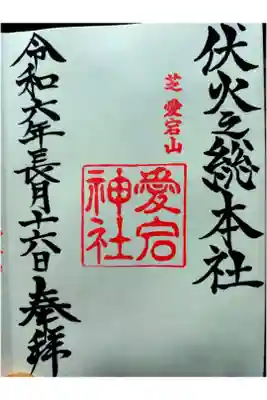 伏火之総本社
芝 愛宕山
愛宕
神社
令和六年長月十六日 奉拝